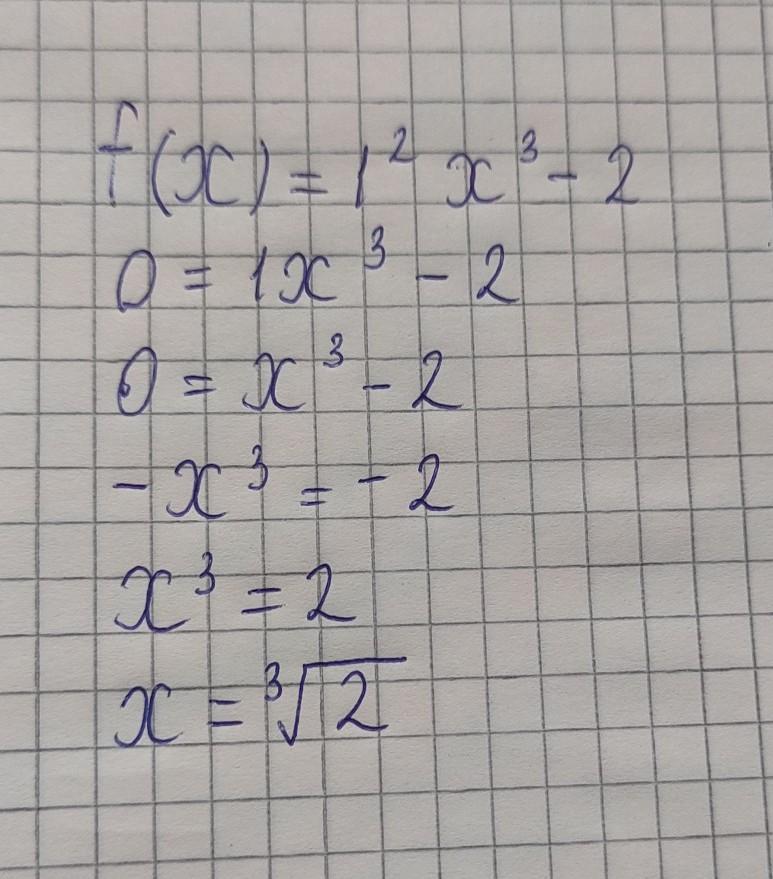 f(x) = 1² x³ - 2
0 = 1x³ - 2
0 = x³ - 2
-x³ = -2
x³ = 2
x = ∛2